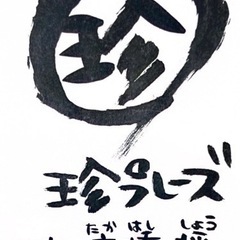 珍
珍プレーズ
たか はし しょう